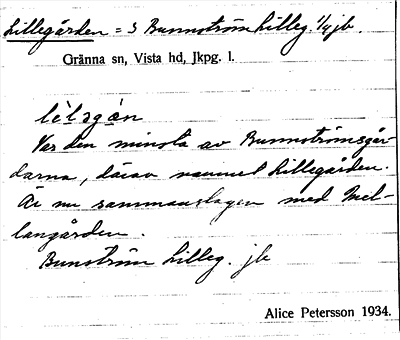 Lillegården = 3 Bunnström Lilleg. 1/4 jb.
Gränna sn, Vista hd, Jkpg. l.
lìləgán
Var den minsta av Bunnströmsgår-
darna, därav namnet Lillegården.
Är nu sammanslagen med Mel-
langården.
Bunström Lilleg. jb
Alice Petersson 1934.